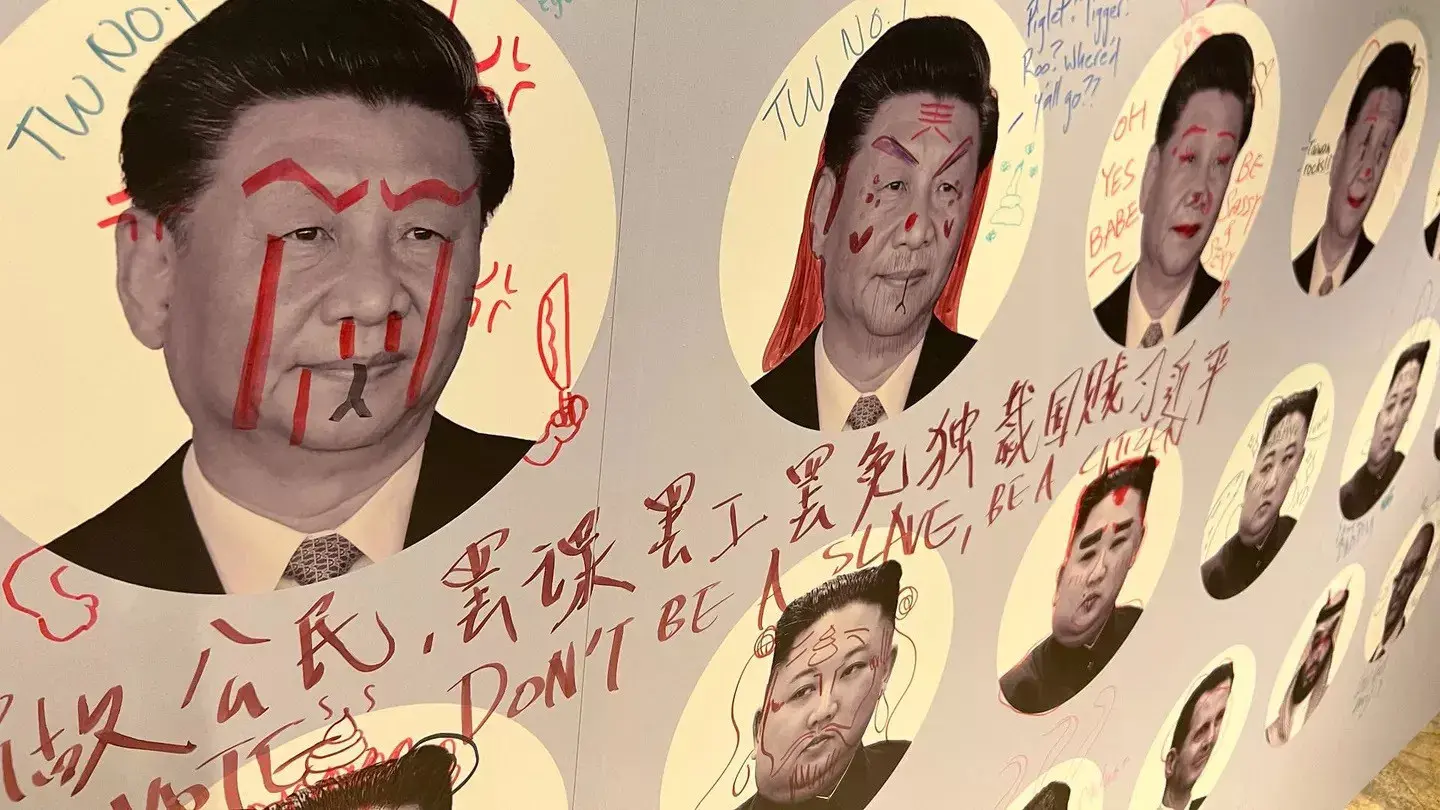 TW NO.1
TW NO.1
Piglet? Tigger?
Roo? Where'd
y'all go??
OH
YES
BABE
BE
Sassy
Taiwan
rocks!!
做公民,罢课罢工罢免独裁国贼习近平
VOTE
DON'T BE A SLAVE, BE A CITIZEN